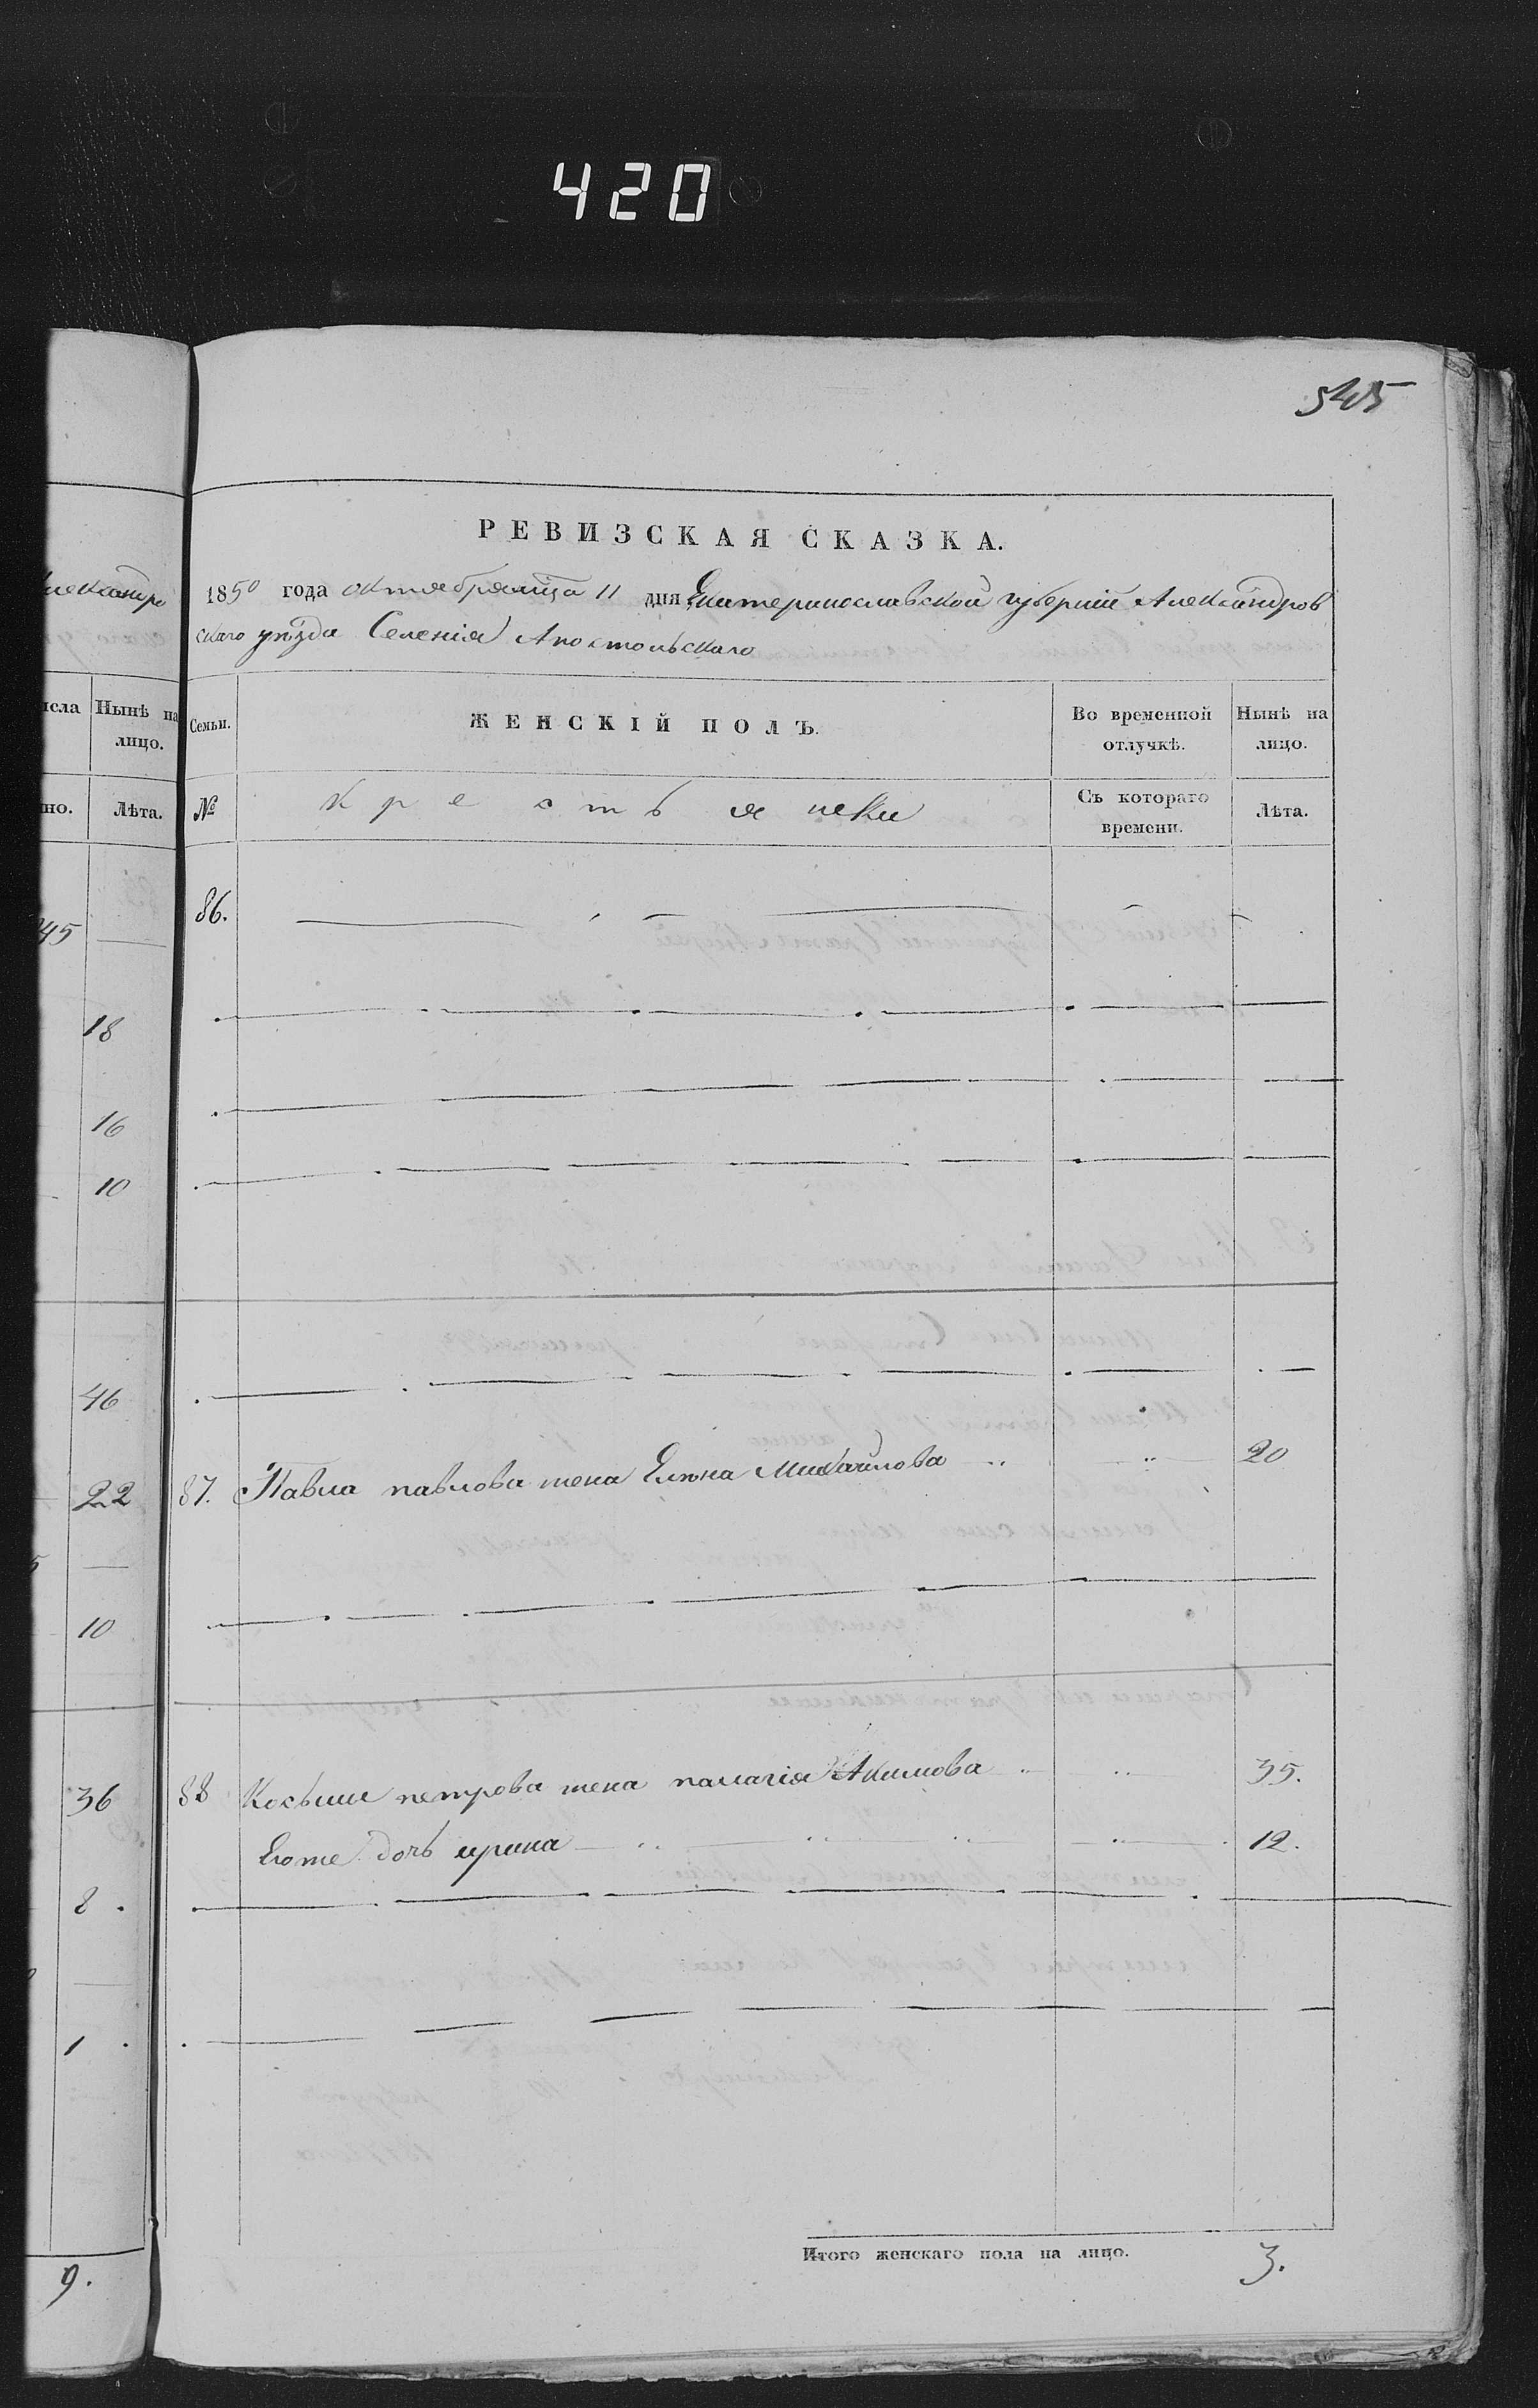 420
545
РЕВИЗСКАЯ СКАЗКА.
1850 года октября мца 11 дня Екатеринославской губернии Александров
скаго уѣзда Селенія Апостольскаго
Александро
исла Нынѣ на лицо.
но. Лѣта.
45
18
16
10
46
22
10
36
8.
1.
9.
Семьи. ЖЕНСКІЙ ПОЛЪ. Во временной отлучкѣ. Нынѣ на лицо.
№ Крестьянки Съ котораго времени. Лѣта.
86.
87. Павла павлова жена Елена Михайлова 20
88 Козьми петрова жена палагія Акимова 35.
Егоже дочь ирина 12.
Итого женскаго пола на лицо. 3.